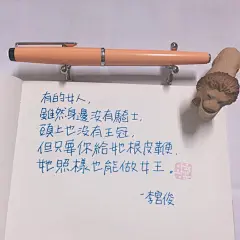 有的女人，
雖然身邊沒有騎士，
頭上也沒有王冠，
但只要你給她根皮鞭，
她照樣也能做女王。
-李宮俊